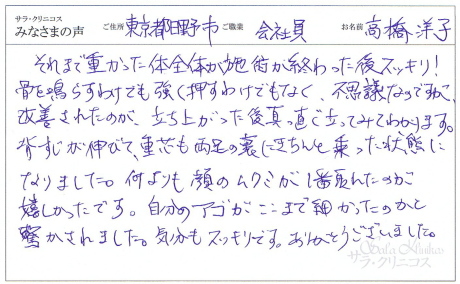 サラ・クリニコス
みなさまの声 ご住所 東京都日野市 ご職業 会社員 お名前 高橋洋子
それまで重かった体全体が施術が終わった後スッキリ!
骨を鳴らすわけでも強く押すわけでもなく、不思議なのですが、
改善されたのが、立ち上がった後真っ直ぐ立ってみてわかります。
背すじが伸びて、重芯も両足の裏にきちんと乗った状態に
なりました。何よりも顔のムクミが1番取れたのが
嬉しかったです。自分のアゴがここまで細かったのかと
驚かされました。気分もスッキリです。ありがとうございました。
Sala Klinikos
サラ・クリニコス